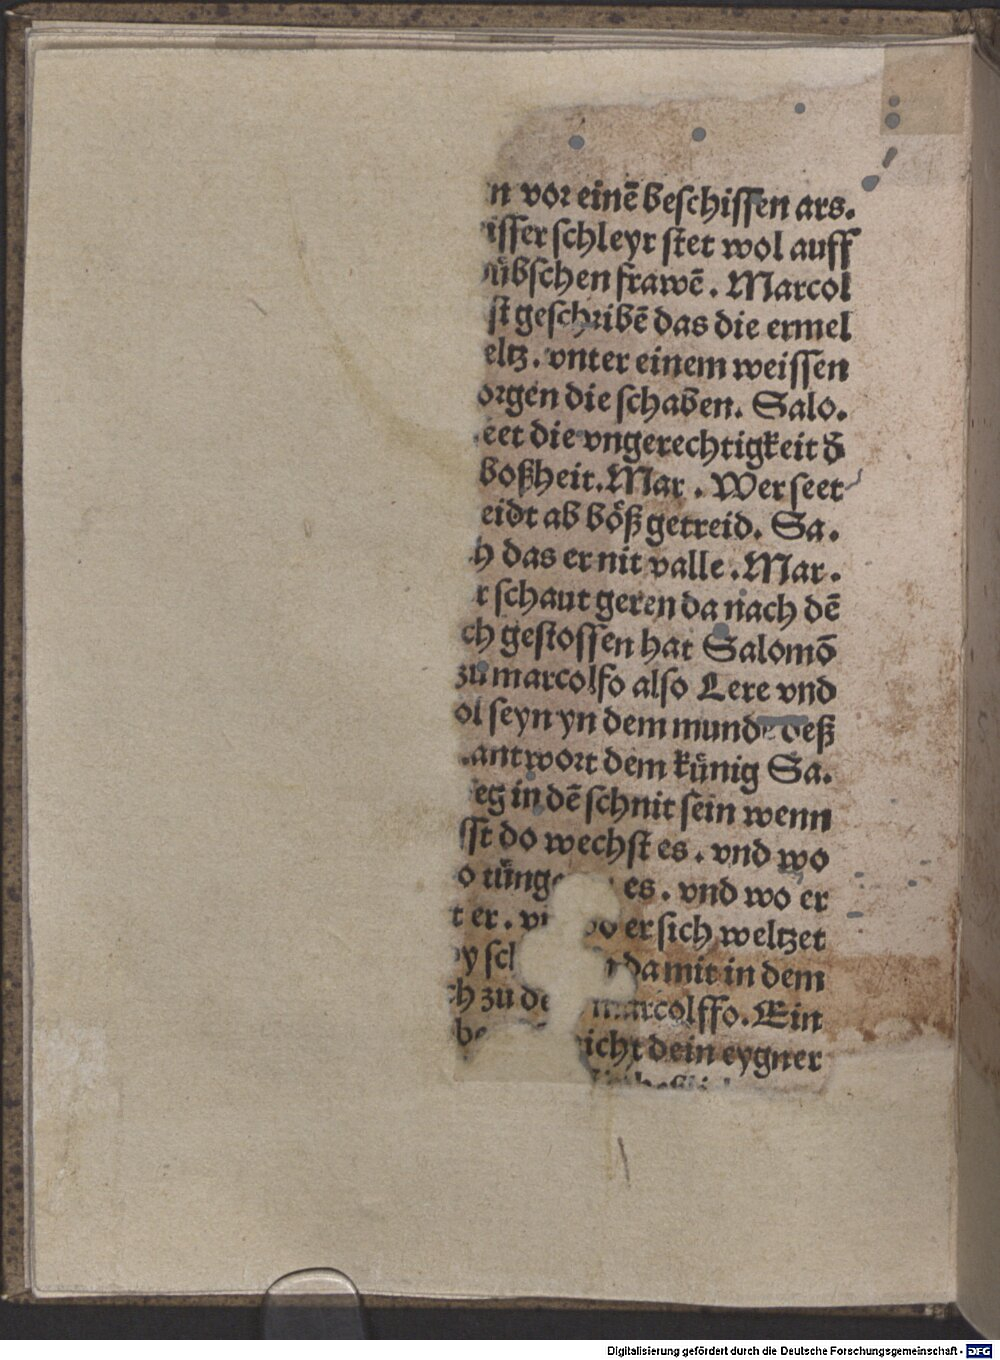 n vor einē beschissen ars.
isser schleyr stet wol auff
übschen frawē. Marcol
st geschribē das die ermel
eltz. vnter einem weissen
orgen die schaben. Salo.
eet die vngerechtigkeit d̄
boßheit. Mar. Wer seet
eidt ab böß getreid. Sa.
h das er nit valle. Mar.
r schaut geren da nach dē
ch gestossen hat Salomō
zu marcolfo also Lere vnd
ol seyn yn dem munde deß
antwort dem künig Sa.
eg in dē schnit sein wenn
sst do wechst es. vnd wo
o tüng es. vnd wo er
t er. er sich weltzet
y damit in dem
ch zu marcolffo. Ein
icht dein eygner
Digitalisierung gefördert durch die Deutsche Forschungsgemeinschaft - DFG